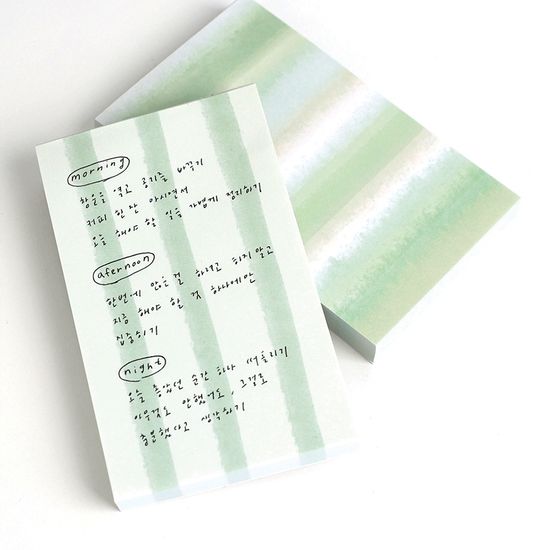 morning
창문을 열고 공기를 바꾸기
커피 한 잔 마시면서
오늘 해야 할 일을 가볍게 정리하기
afernoon
한번에 많은 걸 하려고 하지 말고
지금 해야 할 것 하나에만
집중하기
night
오늘 좋았던 순간 하나 떠올리기
아무것도 안했어도, 그걸로
충분했다고 생각하기